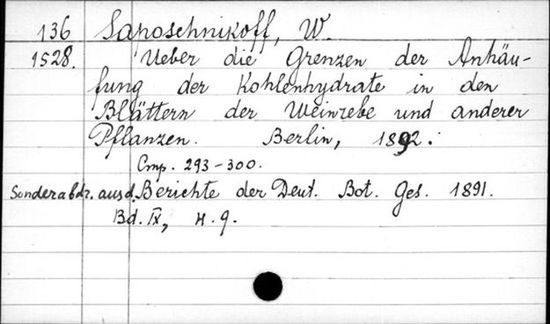 136 Saposchnikoff, W.
1528. Ueber die Grenzen der Anhäu-
fung der Kohlenhydrate in den
Blättern der Weinrebe und anderer
Pflanzen. Berlin, 1892.
Стр. 293-300.
Sonderabdr. aus d. Berichte der Deut. Bot. Ges. 1891.
Bd. IX, H. 9.